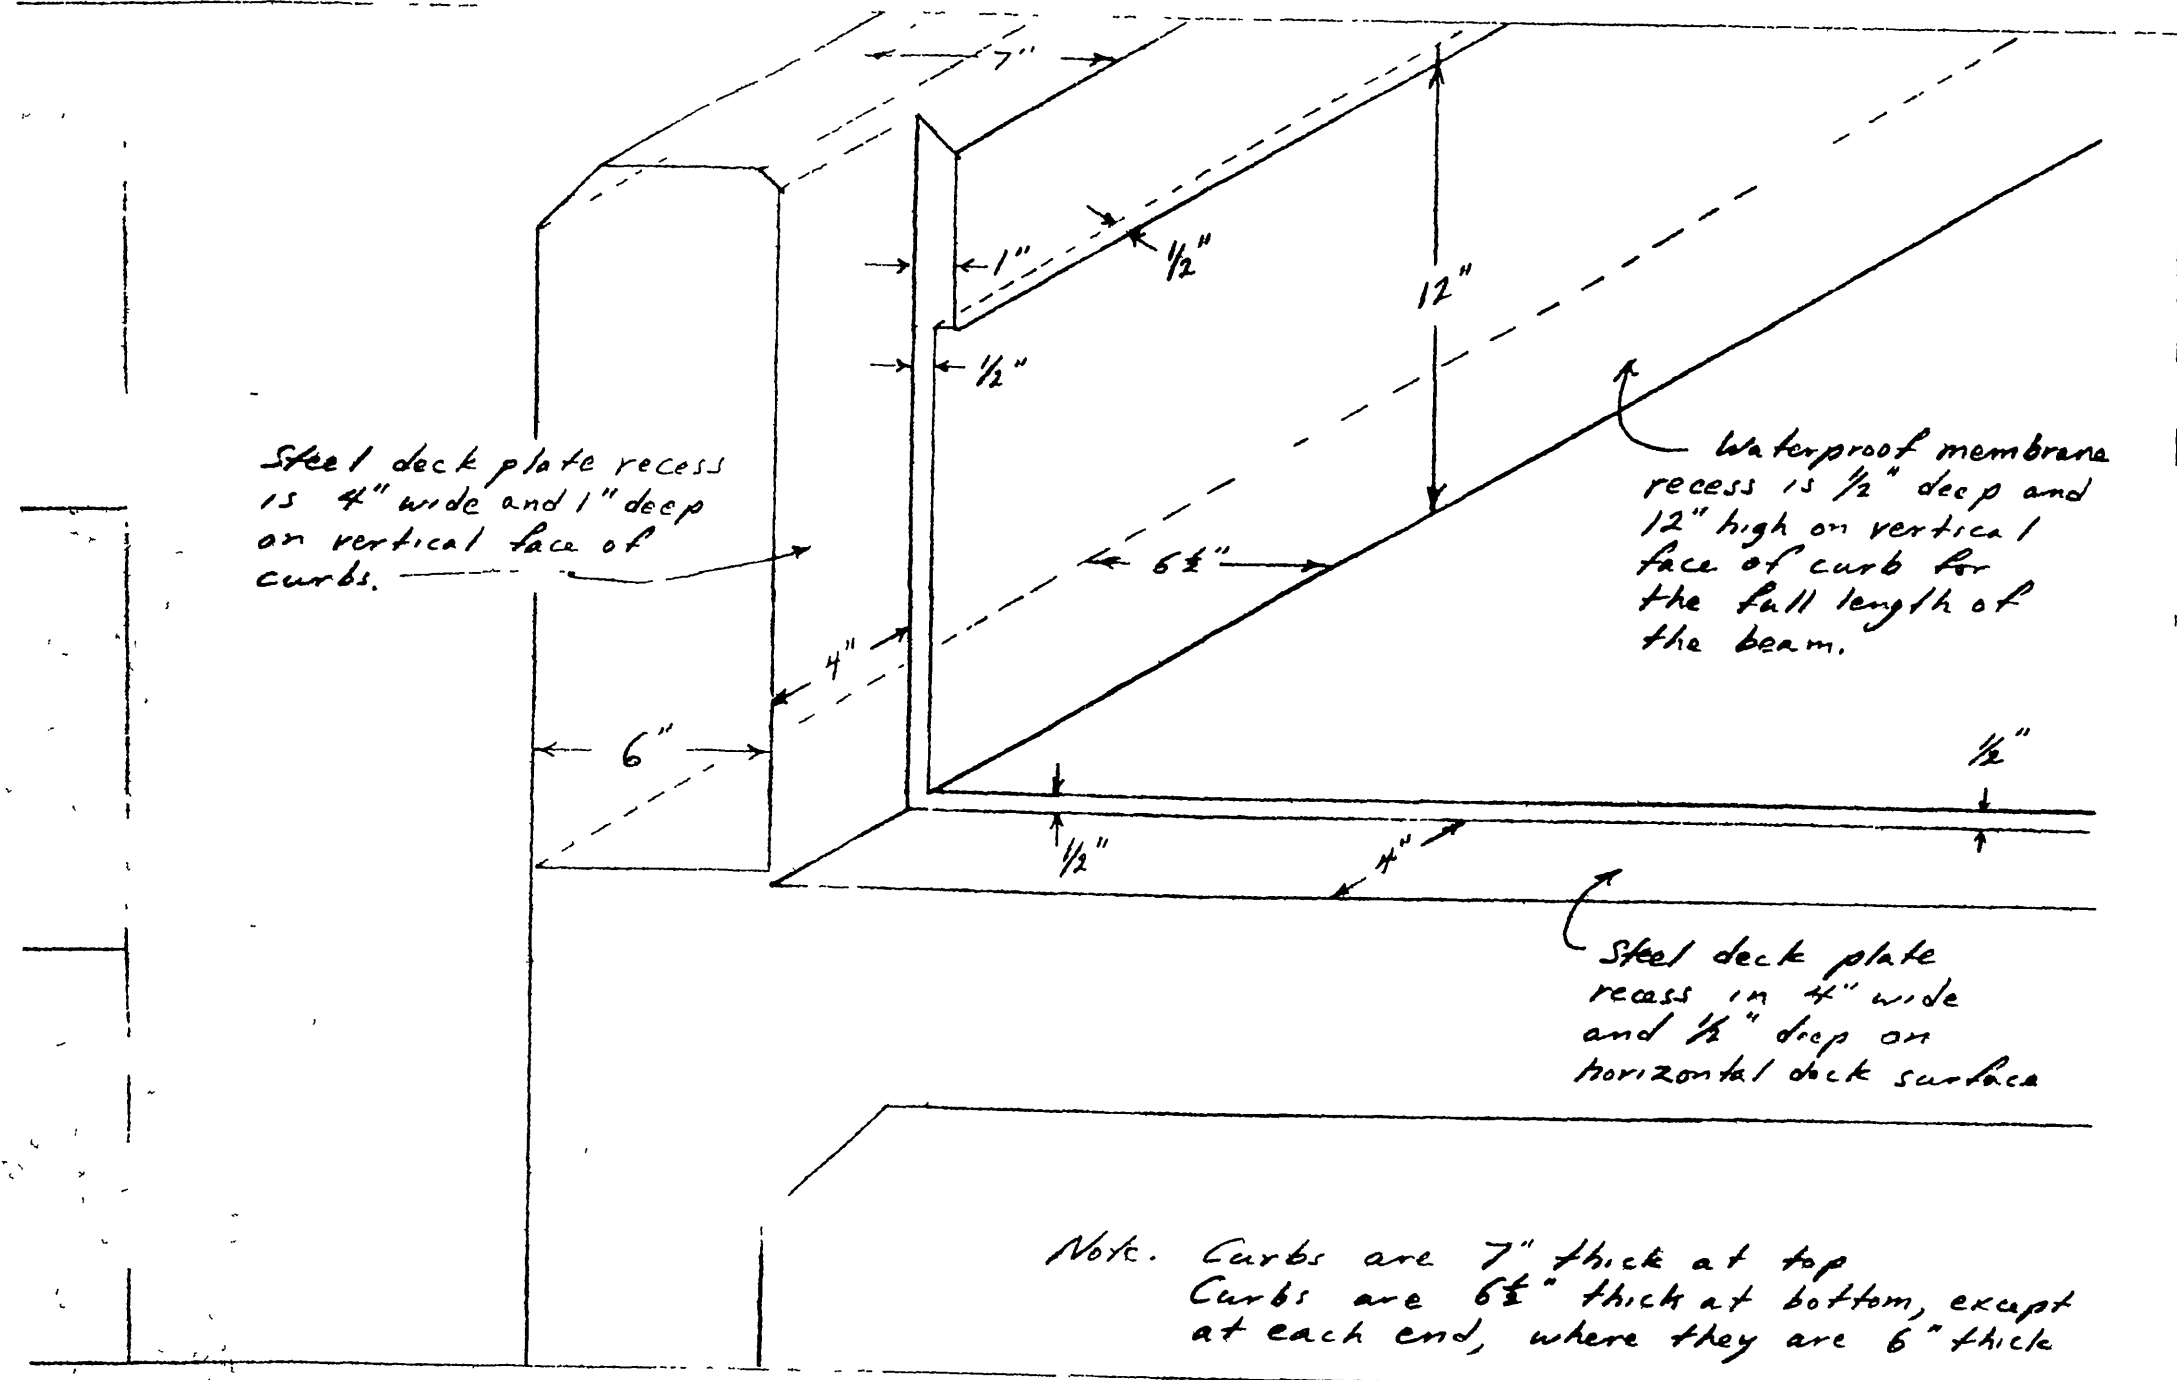 7"
1"
1/2"
12"
1/2"
Steel deck plate recess
is 4" wide and 1" deep
on vertical face of
curbs.
Waterproof membrane
recess is 1/2" deep and
12" high on vertical
face of curb for
the full length of
the beam.
6 1/2"
4"
6"
1/2"
1/2"
4"
Steel deck plate
recess in 4" wide
and 1/2" deep on
horizontal deck surface
Note. Curbs are 7" thick at top
Curbs are 6 1/2" thick at bottom, except
at each end, where they are 6" thick